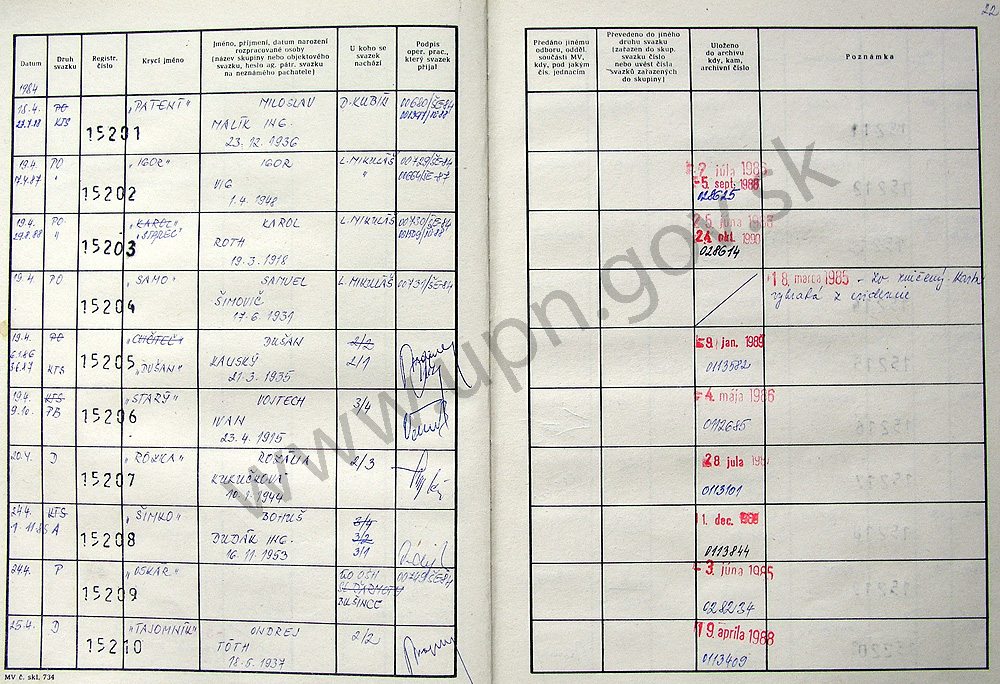 22
Datum
Druh svazku
Registr. číslo
Krycí jméno
Jméno, příjmení, datum narození rozpracované osoby (název skupiny nebo objektového svazku, heslo ag. pátr. svazku na neznámého pachatele)
U koho se svazek nachází
Podpis oper. prac., který svazek přijal
Předáno jinému odboru, odděl. součásti MV, kdy, pod jakým čís. jednacím
Převedeno do jiného druhu svazku (zařazen do skup. svazku číslo nebo uvést čísla svazků zařazených do skupiny)
Uloženo do archivu kdy, kam, archivní číslo
Poznámka
1984
18.4. PO "PATENT" MILOSLAV D.KUBÍN
KTS 15201 MALÍK ING.
23.12.1936
19.4. PO "IGOR" IGOR L.MIKULÁŠ 00729/ŠE-84
17.4.87 " 15202 VIG " 00664/ŠE-87
1.4.1948
júla 1986
5. sept. 1988
028625
19.4. PO "KAROL" KAROL L.MIKULÁŠ 00730/ŠE-84
29.8.88 " 15203 "STAREC" ROTH
19.3.1918
júna 1988
24. okt. 1990
028614
19.4. PO "SAMO" SAMUEL L.MIKULÁŠ 00731/ŠE-84
15204 ŠIMOVIČ
17.6.1931
18. marca 1985 - Zv. zničený. Karta
vybratá z evidencie
19.4. PO DUŠAN 2/2
15205 KAUSKÝ 2/1
KTS "DUŠAN" 21.3.1935
9. jan. 1989
0113582
19.4. KTS "STARÝ" VOJTECH 3/4
9.10. 15206 IVAN
23.4.1915
4. mája 1986
0112685
20.4. D ROZÁLIA 2/3
15207 KUKUČKOVÁ
10.1.1944
28. júla
0113101
24.4. KTS "ŠIMKO" BOHUŠ 3/4
A 15208 DUDÁK ING. 3/2
16.11.1953 3/1
1. dec.
0113844
24.4. P "OSKAR" OO OŠH 00749/ŠE-84
15209
DUŠINCE
3. júna 1985
028234
25.4. D "TAJOMNÍK" ONDREJ 2/2
15210 TÓTH
18.5.1937
19. apríla 1988
0113409
MV č. skl. 734
www.upn.gov.sk